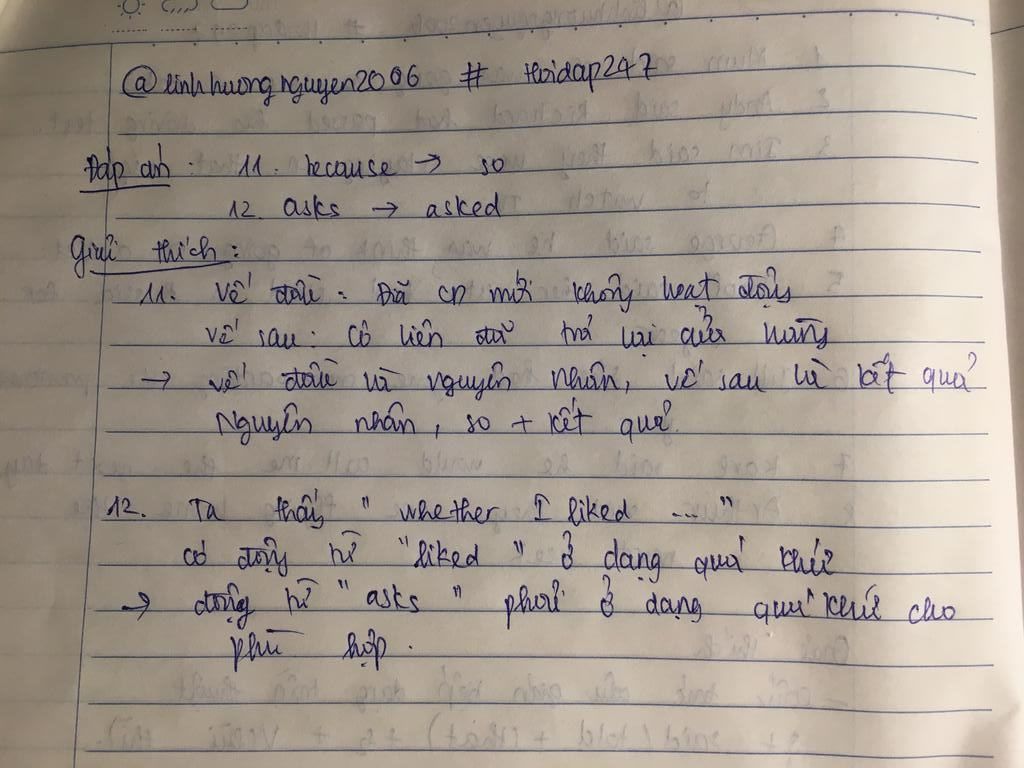 @linhhuongnguyen2006 # hoidap247
Đáp án : 11. because → so
12. asks → asked
Giải thích :
11. Vế đầu : Đĩa CD mới không hoạt động
Vế sau : Cô liền trả lại cửa hàng
→ vế đầu là nguyên nhân, vế sau là kết quả
Nguyên nhân, so + kết quả.
12. Ta thấy " whether I liked ... "
có động từ "liked " ở dạng quá khứ
→ động từ " asks " phải ở dạng quá khứ cho
phù hợp .